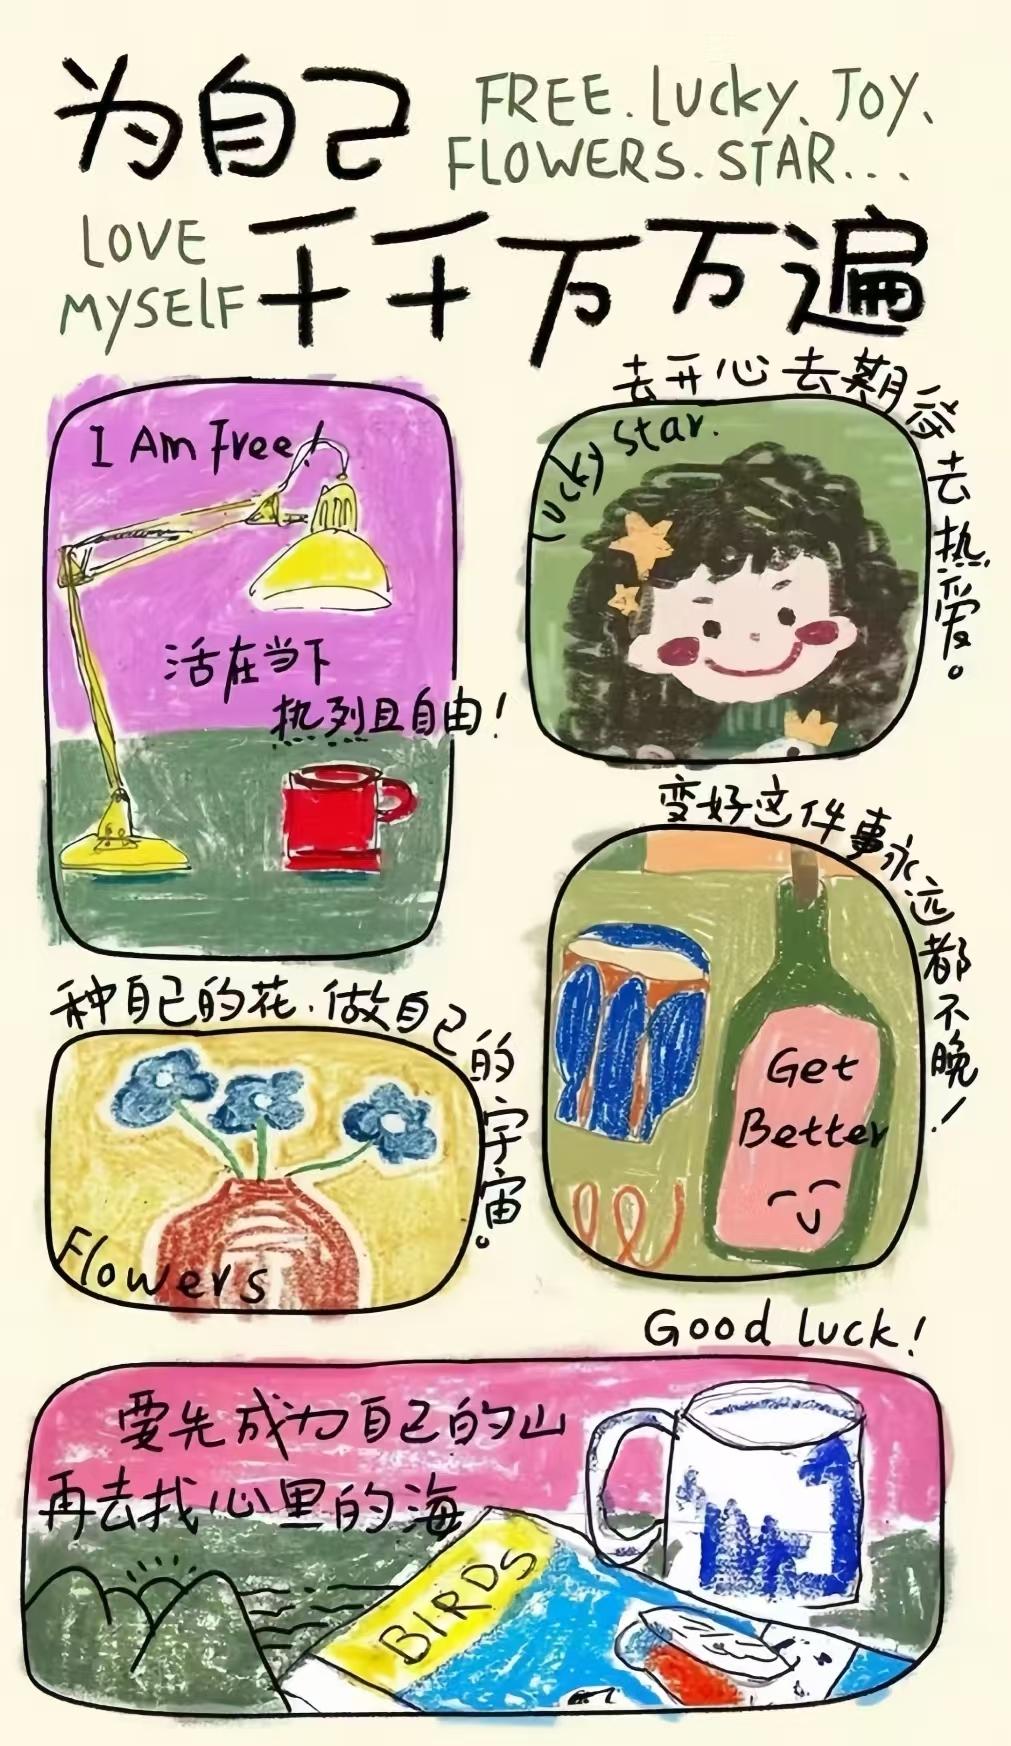 为自己
FREE. lucky、JOY、
FLOWERS. STAR...
LOVE
MYSELF
千千万万遍
去开心去期待去热爱。
I Am Free!
lucky star.
活在当下
热烈且自由!
变好这件事永远都不晚!
种自己的花.做自己的宇宙。
Get
Better
Flowers
Good luck!
要先成为自己的山
再去找心里的海
BIRDS